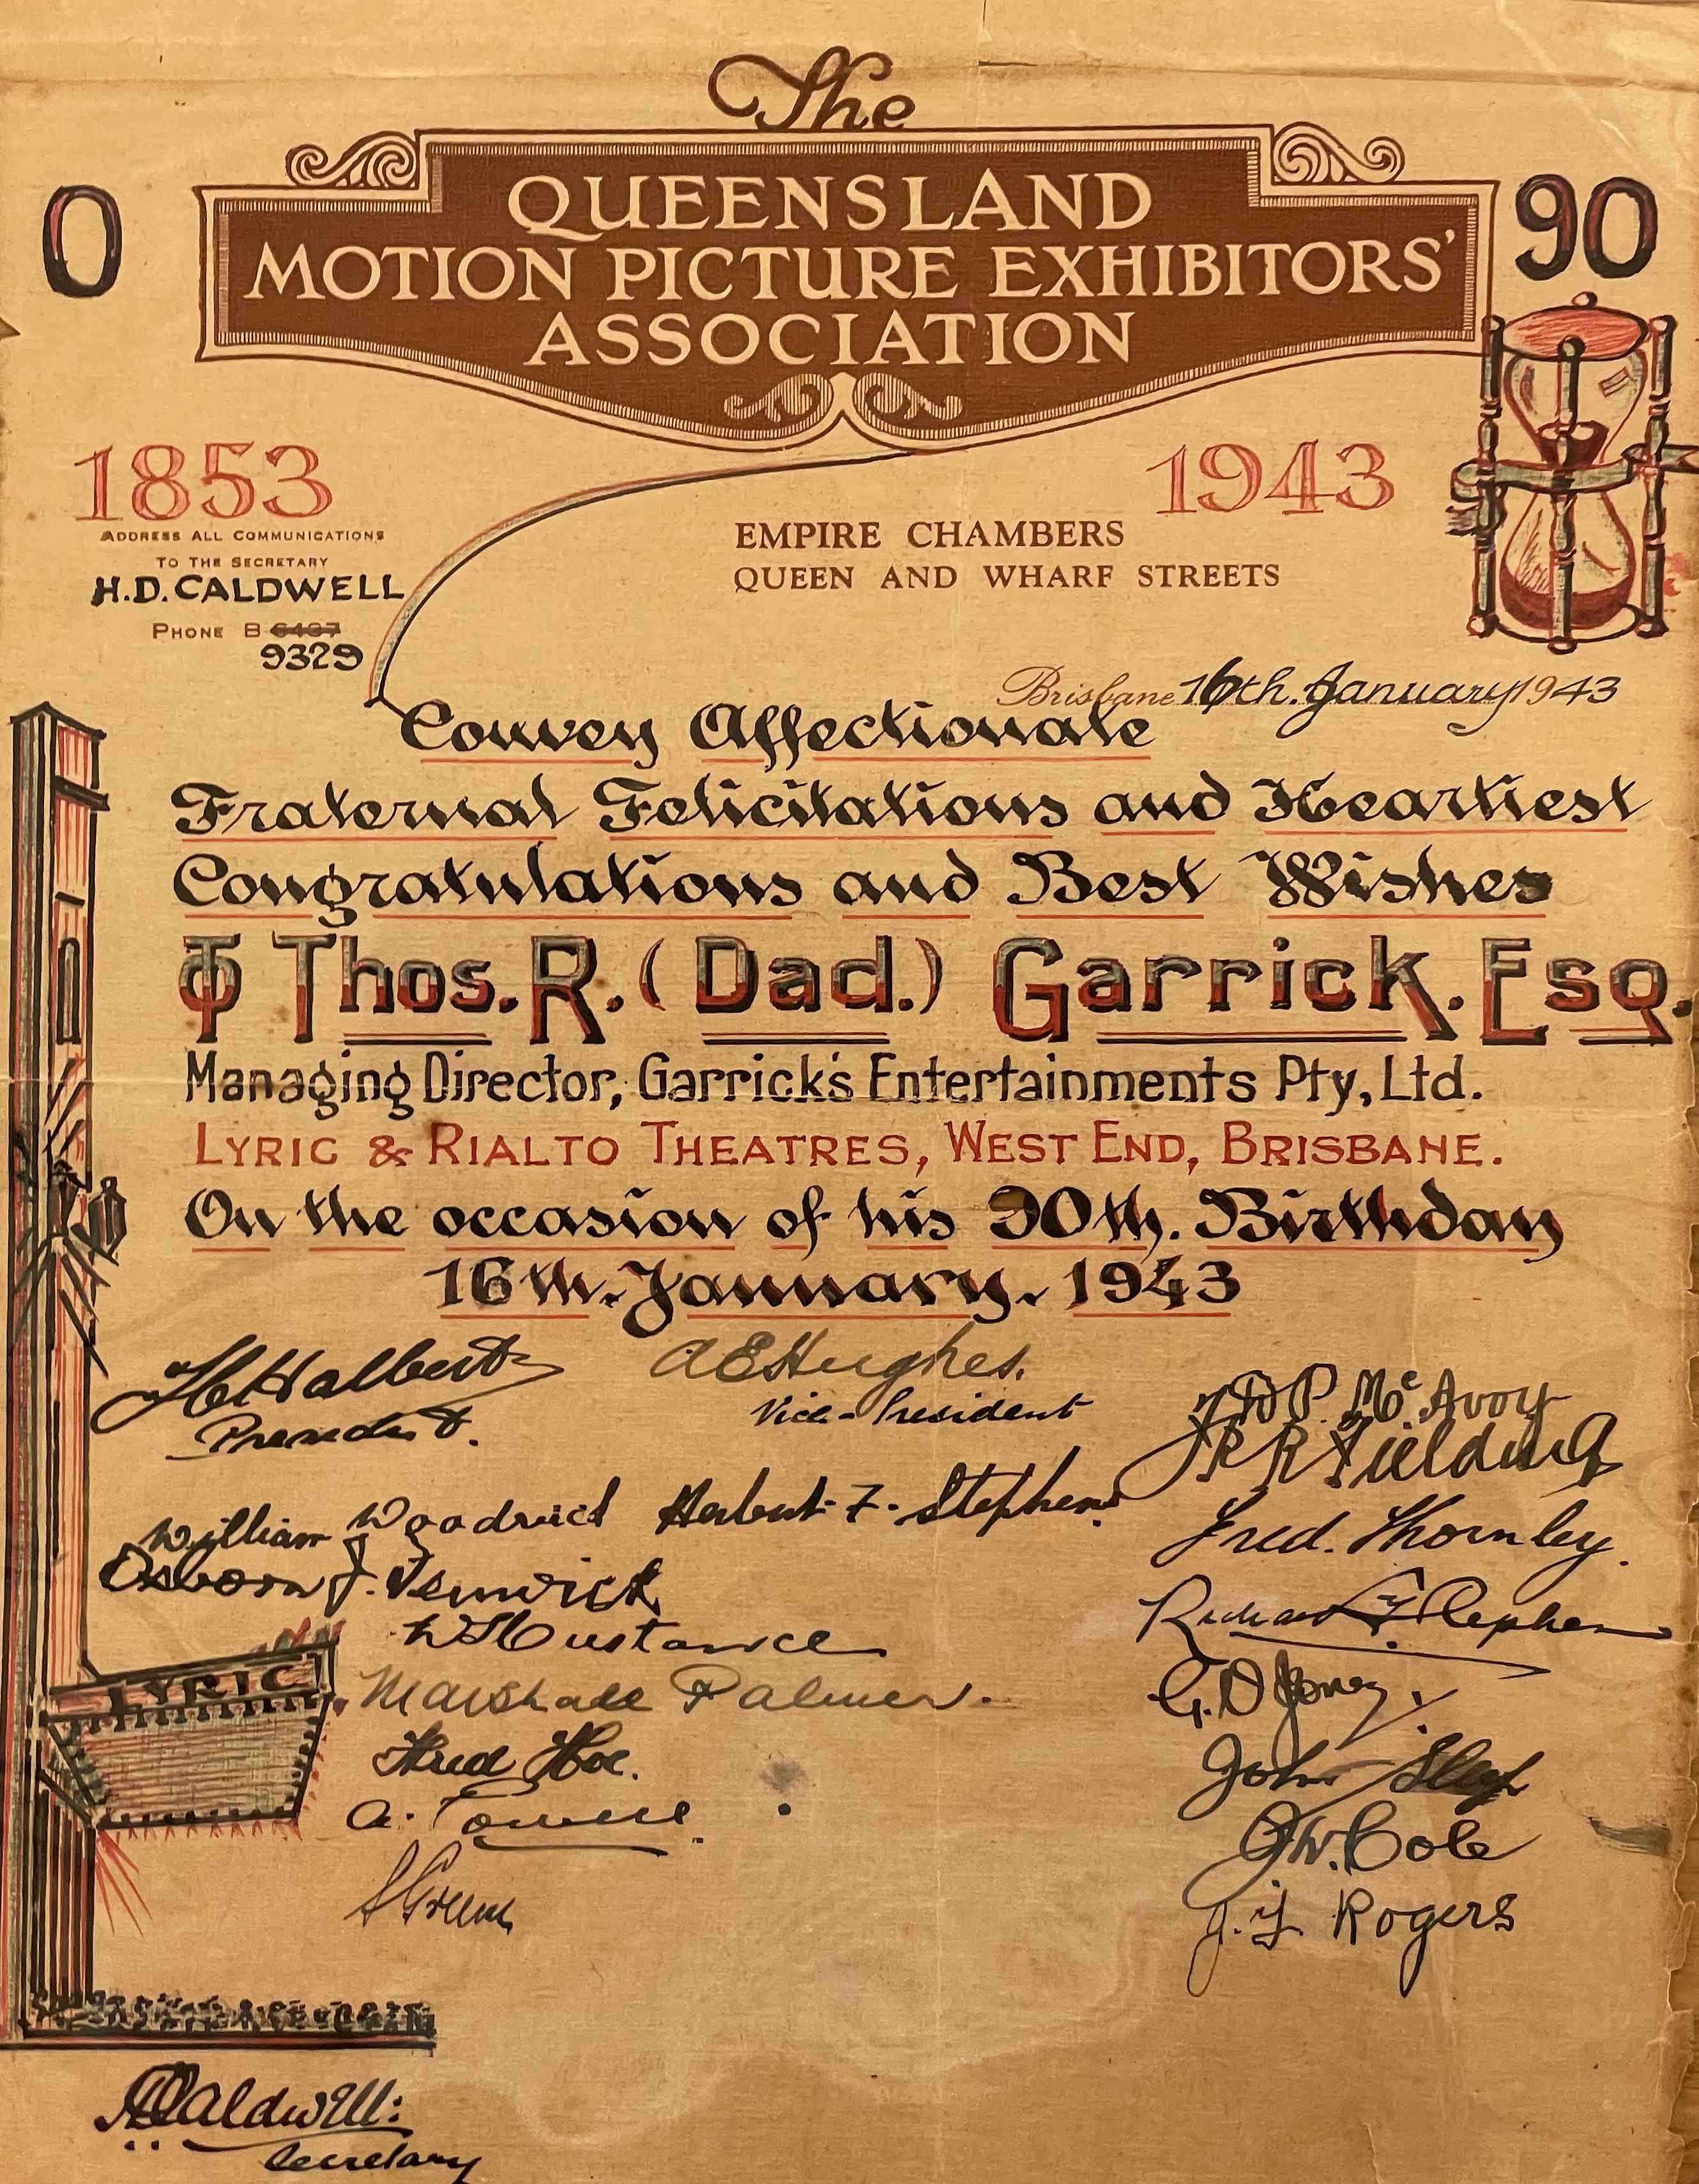 The
QUEENSLAND
MOTION PICTURE EXHIBITORS'
ASSOCIATION
0
90
1853
1943
ADDRESS ALL COMMUNICATIONS
TO THE SECRETARY
H.D. CALDWELL
PHONE B 6497
9329
EMPIRE CHAMBERS
QUEEN AND WHARF STREETS
Brisbane 16th. January 1943
Convey Affectionate
Fraternal Felicitations and Heartiest
Congratulations and Best Wishes
To Thos. R. (Dad.) Garrick. Esq.
Managing Director, Garrick's Entertainments Pty, Ltd.
LYRIC & RIALTO THEATRES, WEST END, BRISBANE.
On the occasion of his 90th. Birthday
16th. January. 1943
Halbert
President.
A E Hughes.
Vice-President
William Woodruct
Herbert F. Stephens.
Osborn J. Fenwick
W H Custance
Marshall Palmer.
Fred Hoe.
A. Towell.
S Green
P. McAvoy
R Fielding
Fred. Thornley.
Richard F. Stephens
G. D Jones.
John
W. Cole
J. Y. Rogers
LYRIC
HD Caldwell:
Secretary